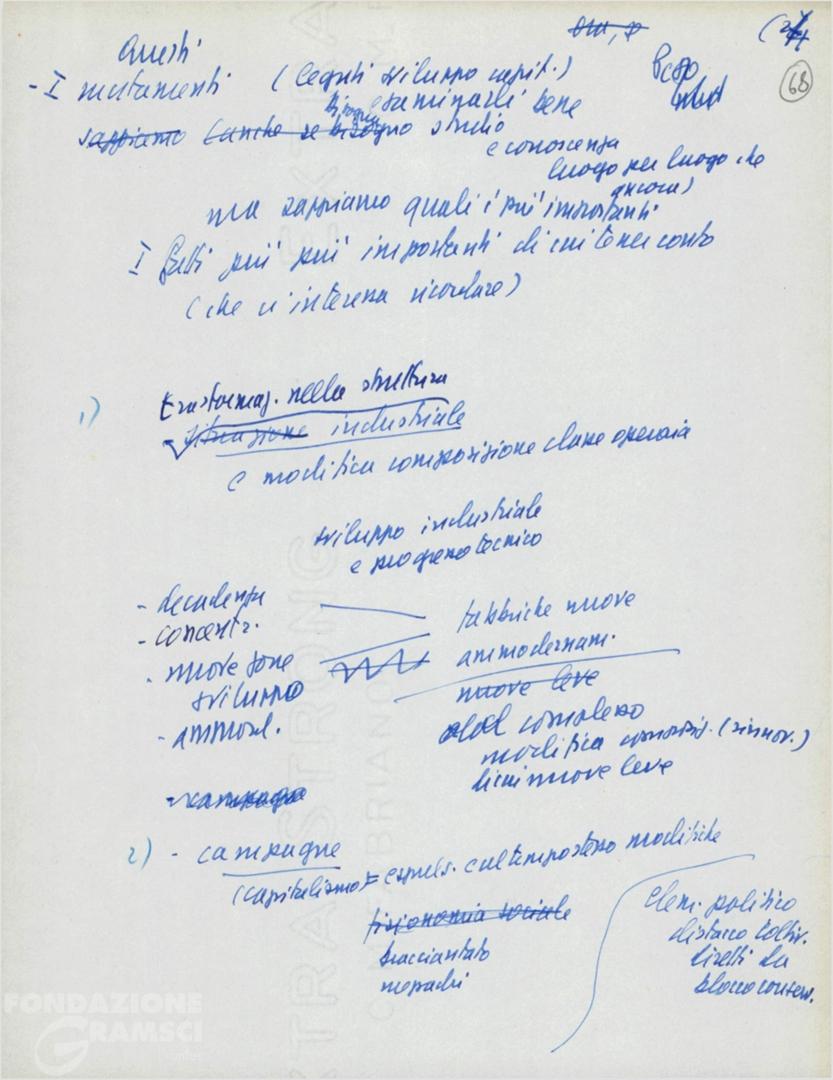 Questi
- I mutamenti (legati sviluppo capit.)
bisogna esaminarli bene
sappiamo (anche se bisogno studio
e conoscenza
luogo per luogo che
ancora)
68
ma sappiamo quali i più importanti.
I fatti più più importanti di cui tener conto
(che ci interessa ricordare)
1)
trasformaz. nella struttura
- situazione industriale
e modifica composizione classe operaia
sviluppo industriale
e progresso tecnico
- decadenza
- concentr.
- nuove zone
sviluppo
- ammod.
fabbriche nuove
ammodernam.
nuove leve
dal complesso
modifica composiz. (rinnov.)
di cui nuove leve
- campagne
2) - campagne
(capitalismo) = espuls. e al tempo stesso modifiche
fisionomia sociale
bracciantato
mezzadri
elem. politico
distacco coltiv.
diretti da
blocco conserv.
FONDAZIONE
GRAMSCI